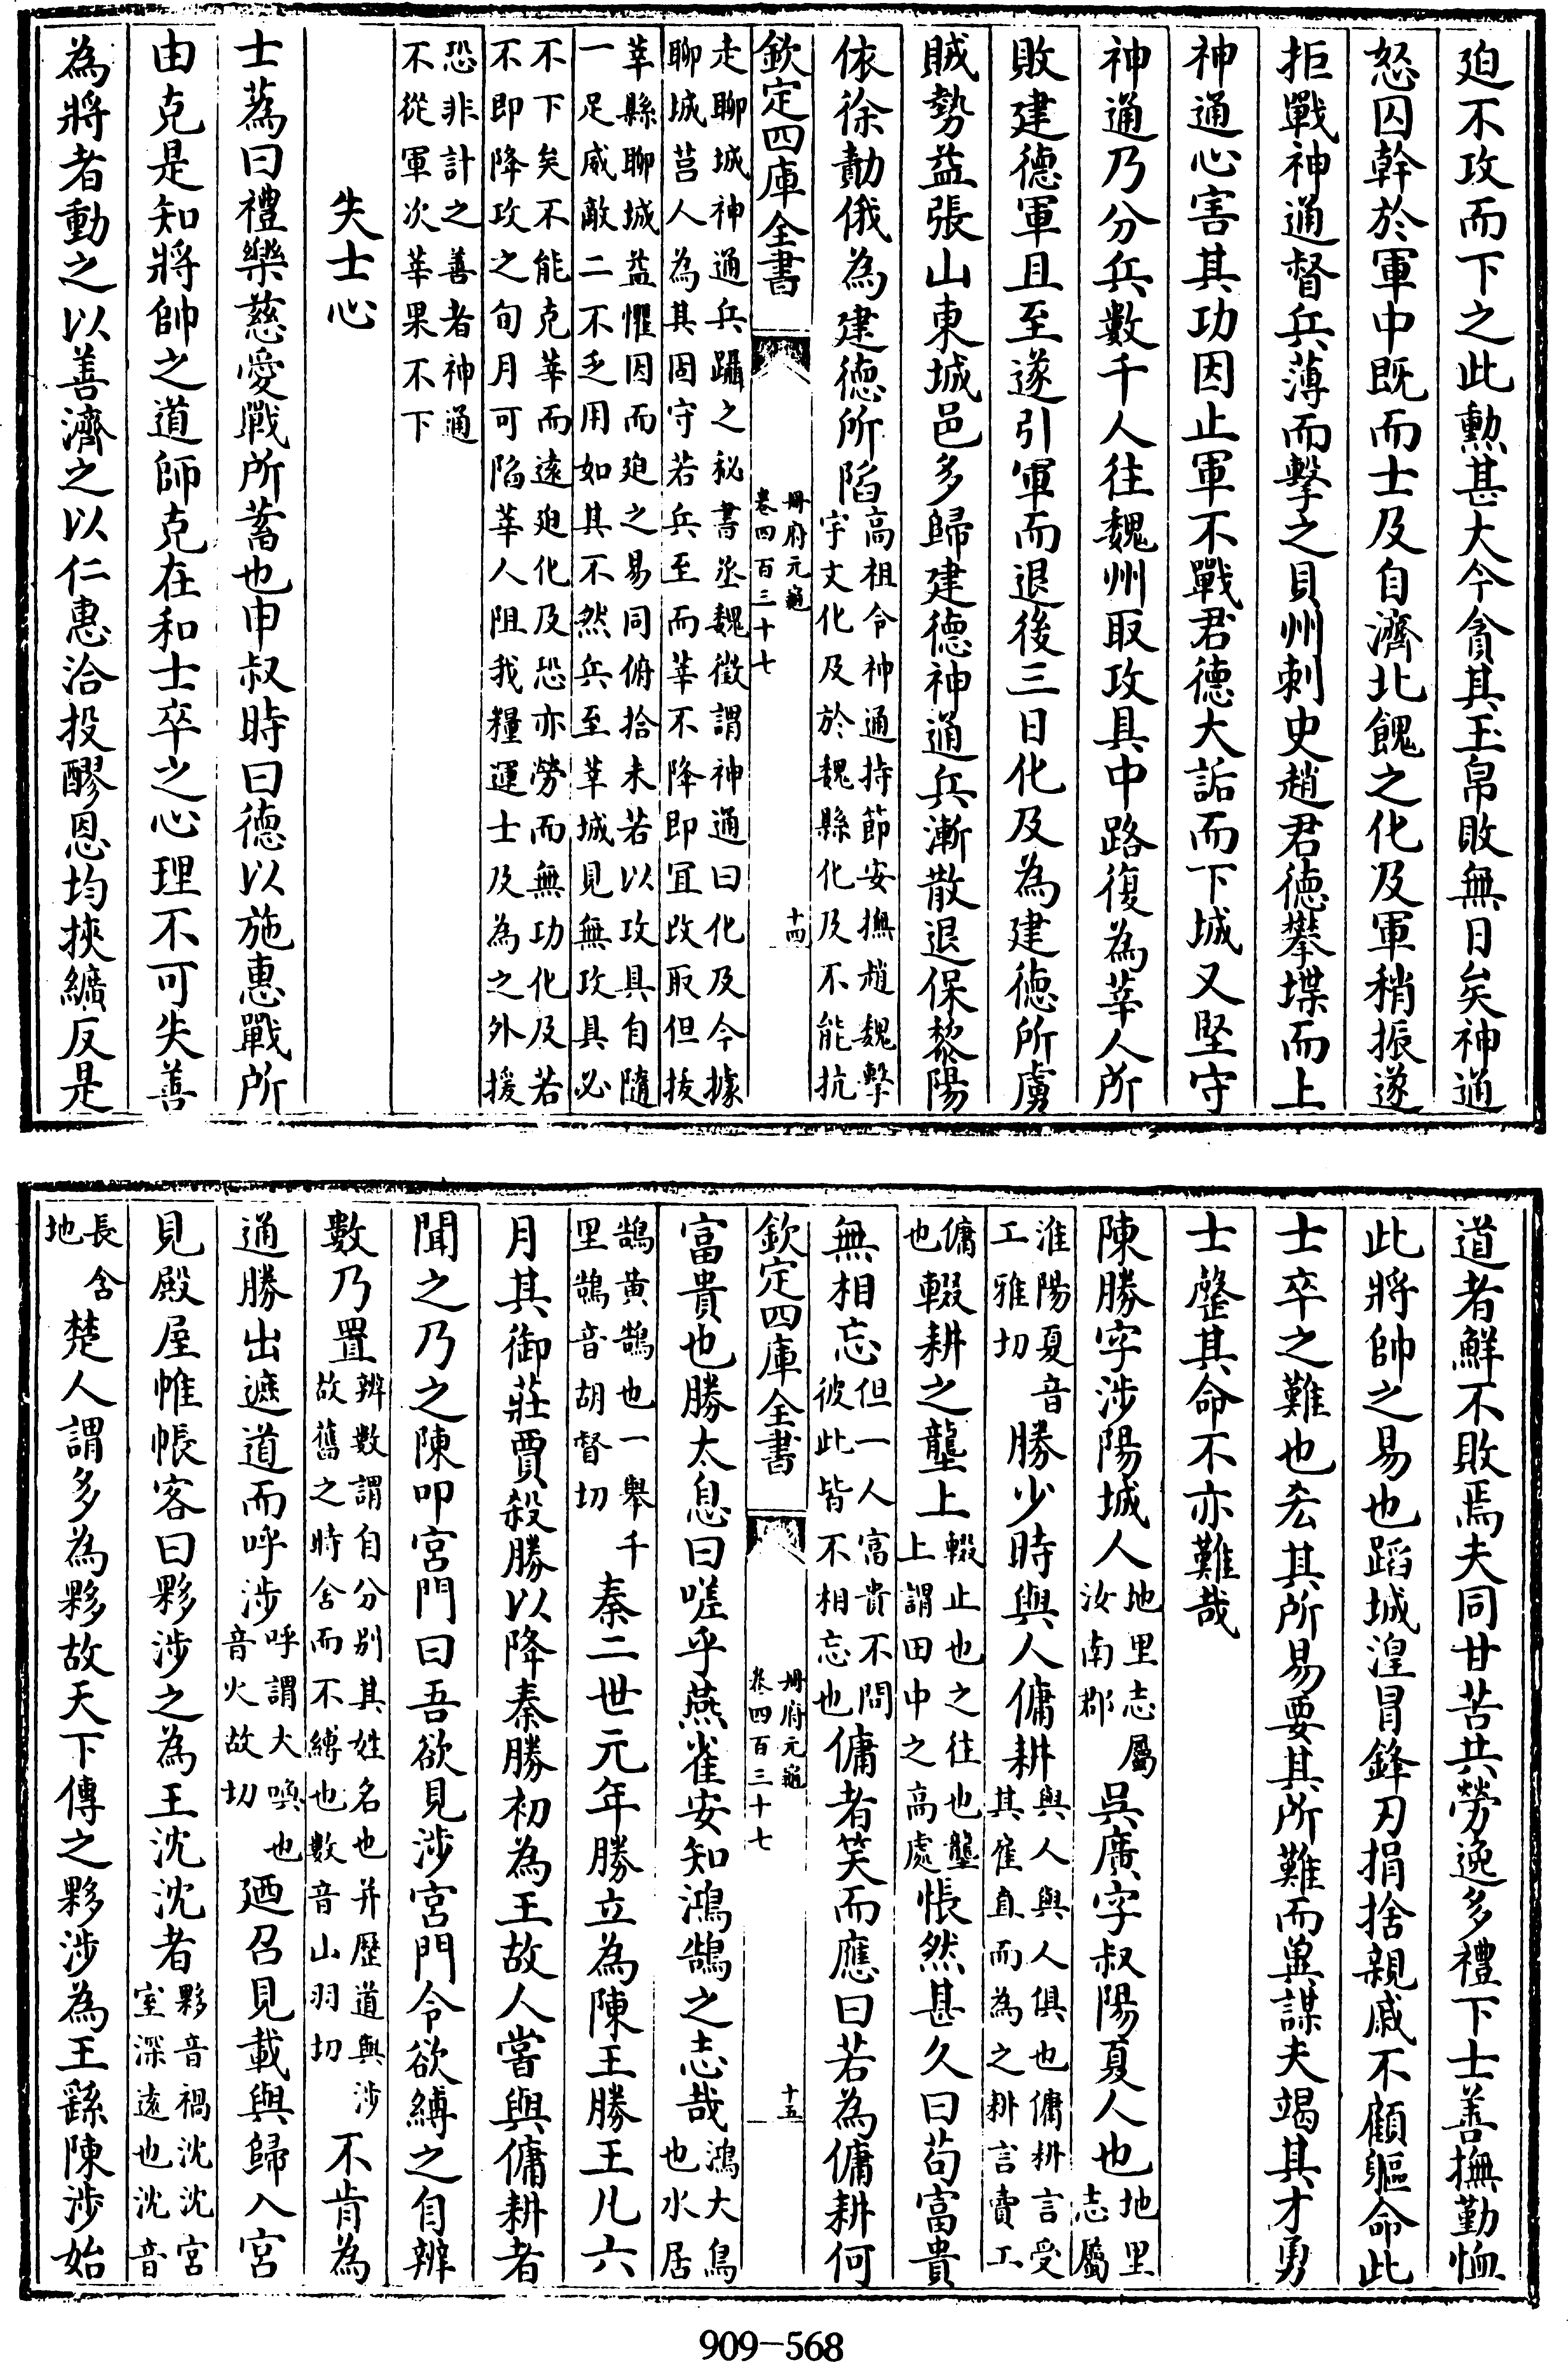 廹不攻而下之此勲甚大今貪其玉帛敗無日矣神通
怒囚幹於軍中既而士及自濟北餽之化及軍稍振遂
拒戰神通督兵薄而擊之貝州刺史趙君德攀堞而上
神通心害其功因止軍不戰君德大詬而下城又堅守
神通乃分兵數千人往魏州取攻具中路復為莘人所
敗建德軍且至遂引軍而退後三日化及為建德所虜
賊勢益張山東城邑多歸建德神通兵漸散退保黎陽
依徐勣俄為建德所陷高祖令神通持節安撫趙魏擊
宇文化及於魏縣化及不能抗
欽定四庫全書
冊府元龜
卷四百三十七
十四
走聊城神通兵躡之秘書丞魏徵謂神通曰化及今據
聊城莒人為其固守若兵至而莘不降即宜攻取但拔
莘縣聊城益懼因而廹之易同俯拾未若以攻具自隨
一足威敵二不乏用如其不然兵至莘城見無攻具必
不下矣不能克莘而遠廹化及恐亦勞而無功化及若
不即降攻之旬月可陷莘人阻我糧運士及為之外援
恐非計之善者神通
不從軍次莘果不下
失士心
士蒍曰禮樂慈愛戰所蓄也申叔時曰德以施惠戰所
由克是知將帥之道師克在和士卒之心理不可失善
為將者動之以善濟之以仁惠洽投醪恩均挾纊反是
道者鮮不敗焉夫同甘苦共勞逸多禮下士善撫勤恤
此將帥之易也蹈城湟冒鋒刃捐捨親戚不顧軀命此
士卒之難也厺其所易要其所難而兾謀夫竭其才勇
士罄其命不亦難哉
陳勝字涉陽城人地里志屬
汝南郡
吳廣字叔陽夏人也地里
志屬
淮陽夏音
工雅切
勝少時與人傭耕與人與人俱也傭耕言受
其雇直而為之耕言賣工
傭
也
輟耕之壟上輟止也之往也壟
上謂田中之高處
悵然甚久曰苟富貴
無相忘但一人富貴不問
彼此皆不相忘也
傭者笑而應曰若為傭耕何
欽定四庫全書
冊府元龜
卷四百三十七
十五
富貴也勝太息曰嗟乎燕雀安知鴻鵠之志哉鴻大鳥
也水居
鵠黄鵠也一舉千
里鵠音胡督切
秦二世元年勝立為陳王勝王凡六
月其御莊賈殺勝以降秦勝初為王故人嘗與傭耕者
聞之乃之陳叩宮門曰吾欲見涉宮門令欲縛之自辨
數乃置辨數謂自分别其姓名也并歴道與涉
故舊之時舍而不縛也數音山羽切
不肯為
通勝出遮道而呼涉呼謂大喚也
音火故切
廼召見載與歸入宮
見殿屋帷帳客曰夥涉之為王沈沈者夥音禍沈沈宮
室深遠也沈音
長含
地
楚人謂多為夥故天下傳之夥涉為王繇陳涉始
909-568